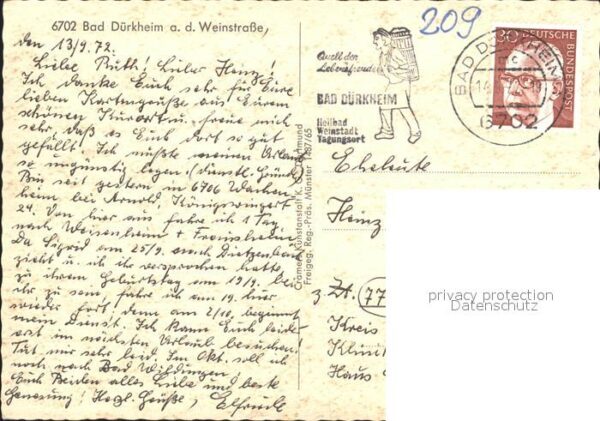 6702 Bad Dürkheim a. d. Weinstraße,
den 13/9. 72.
Liebe Ruth! Lieber Heinz!
Ich danke Euch sehr für Eure
lieben Kartengrüße aus Eurem
schönen Kurort u. freue mich
sehr, daß es Euch dort so gut
gefällt! Ich mußte meinen Urlaub
so ungünstig legen (dienstl. Gründe)
Bin seit gestern in 6706 Wachen-
heim bei Arnold, Königswingert
24. Von hier aus fahre ich 1 Tag
nach Weisenheim + Freinsheim
Da Sigrid am 25/9. nach Dietzenbach
zieht u. ich ihr versprochen hatte
zu ihrem Geburtstag am 19/9. bei
ihr zu sein, fahre ich am 19. hier
wieder fort, denn am 2/10. beginnt
mein Dienst. Ich kann Euch leider
erst im nächsten Urlaub besuchen!
Tut mir sehr leid. Im Okt. soll ich
noch nach Bad Wildungen!
Euch Beiden alles Liebe und beste
Genesung! Herzl. Grüße, Elfriede
Cramers Kunstanstalt K. G., Dortmund
Freigeg. Reg.-Präs. Münster 1487/65
209
Quell der
Lebensfreude
BAD DÜRKHEIM
Heilbad
Weinstadt
Tagungsort
BAD DÜRKHEIM
6702
30
DEUTSCHE
BUNDESPOST
Eheleute
Heinz
z. Zt. (77
Kreis
Klinik
Haus
privacy protection
Datenschutz